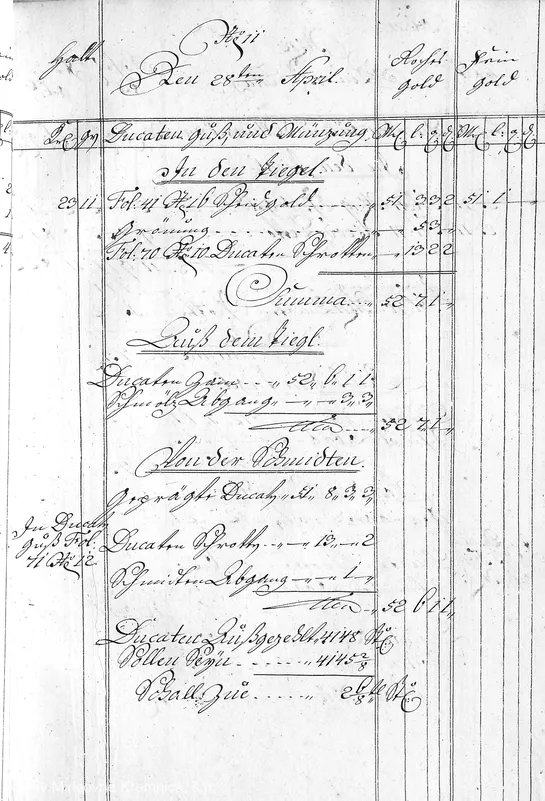 No 11
Halt
Den 28ten April.
Roches Gold
Fein Gold
Kr: gr Ducaten Guß und Münzung. M: l: q d. M: l: q d.
In den Tiegel.
23 11 Fol: 41 No 16 Scheidgold 51 3 3 2 51 1
53
Fol: 70 No 10 Ducaten Schrotten 13 2 2
Summa 52 7 1
Auß dem Tiegl.
Ducaten Gain 52 6 1 1
Schmölz Abgang 3 3
52 7 1
Von der Schmidten.
Geprägte Ducaten 51 8 3 3
In Ducaten
Guß Fol.
71 No 12
Ducaten Schrotten 13 2
Schmidten Abgang 1
52 6 1 1
Ducaten Außgezehlt 4148 St:
Sollen Seyn 4145 2/8
Schall: Zue 2 6/8 St: